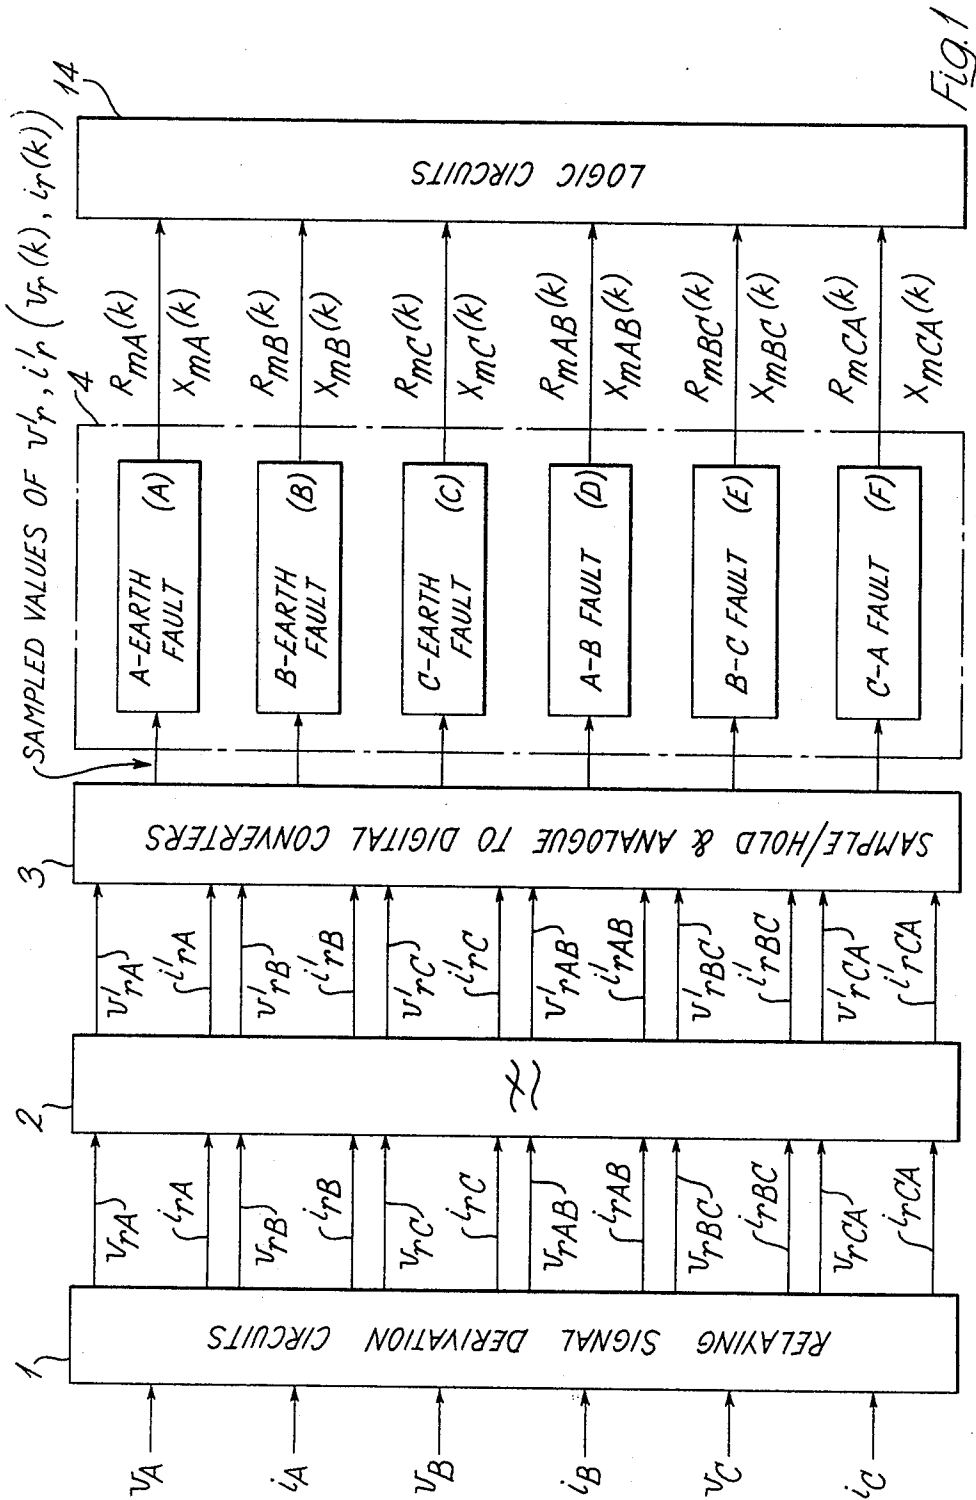 SAMPLED VALUES OF v'r, i'r (vr(k), ir(k))
1
2
3
4
14
vA
iA
vB
iB
vC
iC
RELAYING SIGNAL DERIVATION CIRCUITS
vrA
irA
vrB
irB
vrC
irC
vrAB
irAB
vrBC
irBC
vrCA
irCA
v'rA
i'rA
v'rB
i'rB
v'rC
i'rC
v'rAB
i'rAB
v'rBC
i'rBC
v'rCA
i'rCA
SAMPLE/HOLD & ANALOGUE TO DIGITAL CONVERTERS
A-EARTH
FAULT (A)
B-EARTH
FAULT (B)
C-EARTH
FAULT (C)
A-B FAULT (D)
B-C FAULT (E)
C-A FAULT (F)
RmA(k)
XmA(k)
RmB(k)
XmB(k)
RmC(k)
XmC(k)
RmAB(k)
XmAB(k)
RmBC(k)
XmBC(k)
RmCA(k)
XmCA(k)
LOGIC CIRCUITS
Fig.1